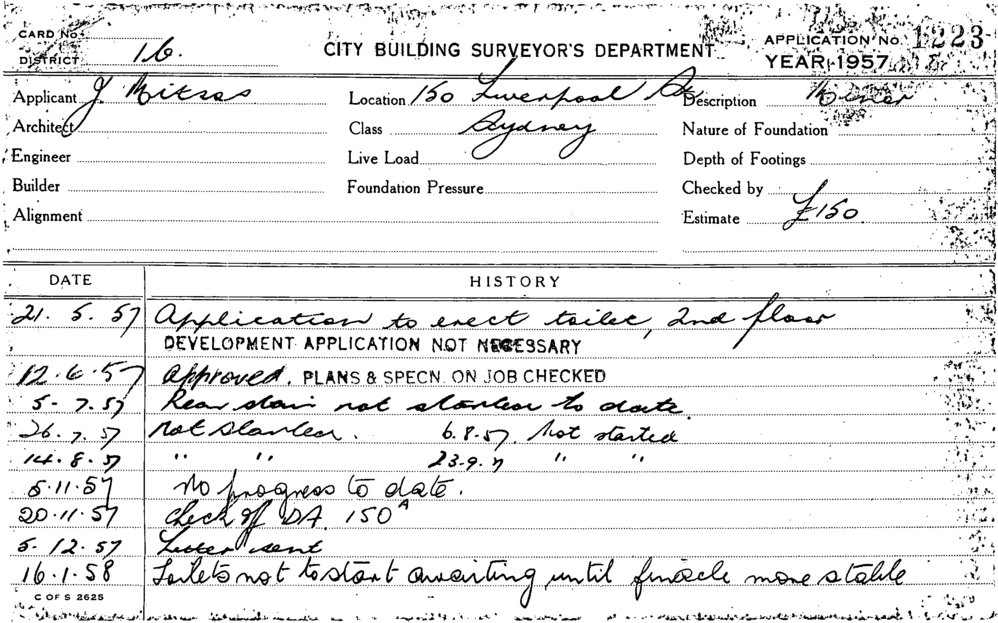 CARD No.
DISTRICT 16.
CITY BUILDING SURVEYOR'S DEPARTMENT
APPLICATION No. 1223
YEAR 1957
Applicant J
Location 150 Liverpool St.
Description Minor
Architect
Class Sydney
Nature of Foundation
Engineer
Live Load
Depth of Footings
Builder
Foundation Pressure
Checked by
Alignment
Estimate £150.
DATE HISTORY
21. 5. 57 Application to erect toilet, 2nd floor
DEVELOPMENT APPLICATION NOT NECESSARY
12. 6. 57 Approved. PLANS & SPECN. ON JOB CHECKED
5. 7. 57 not started to date.
26. 7. 57 Not started. 6.8.57. Not started
14. 8. 57 " " 23.9. " "
5.11.57 No progress to date.
20.11.57 Check of DA. 150A
5. 12. 57 Letter sent
16.1.58 Toilets not to start awaiting until more stable
C OF S 2625